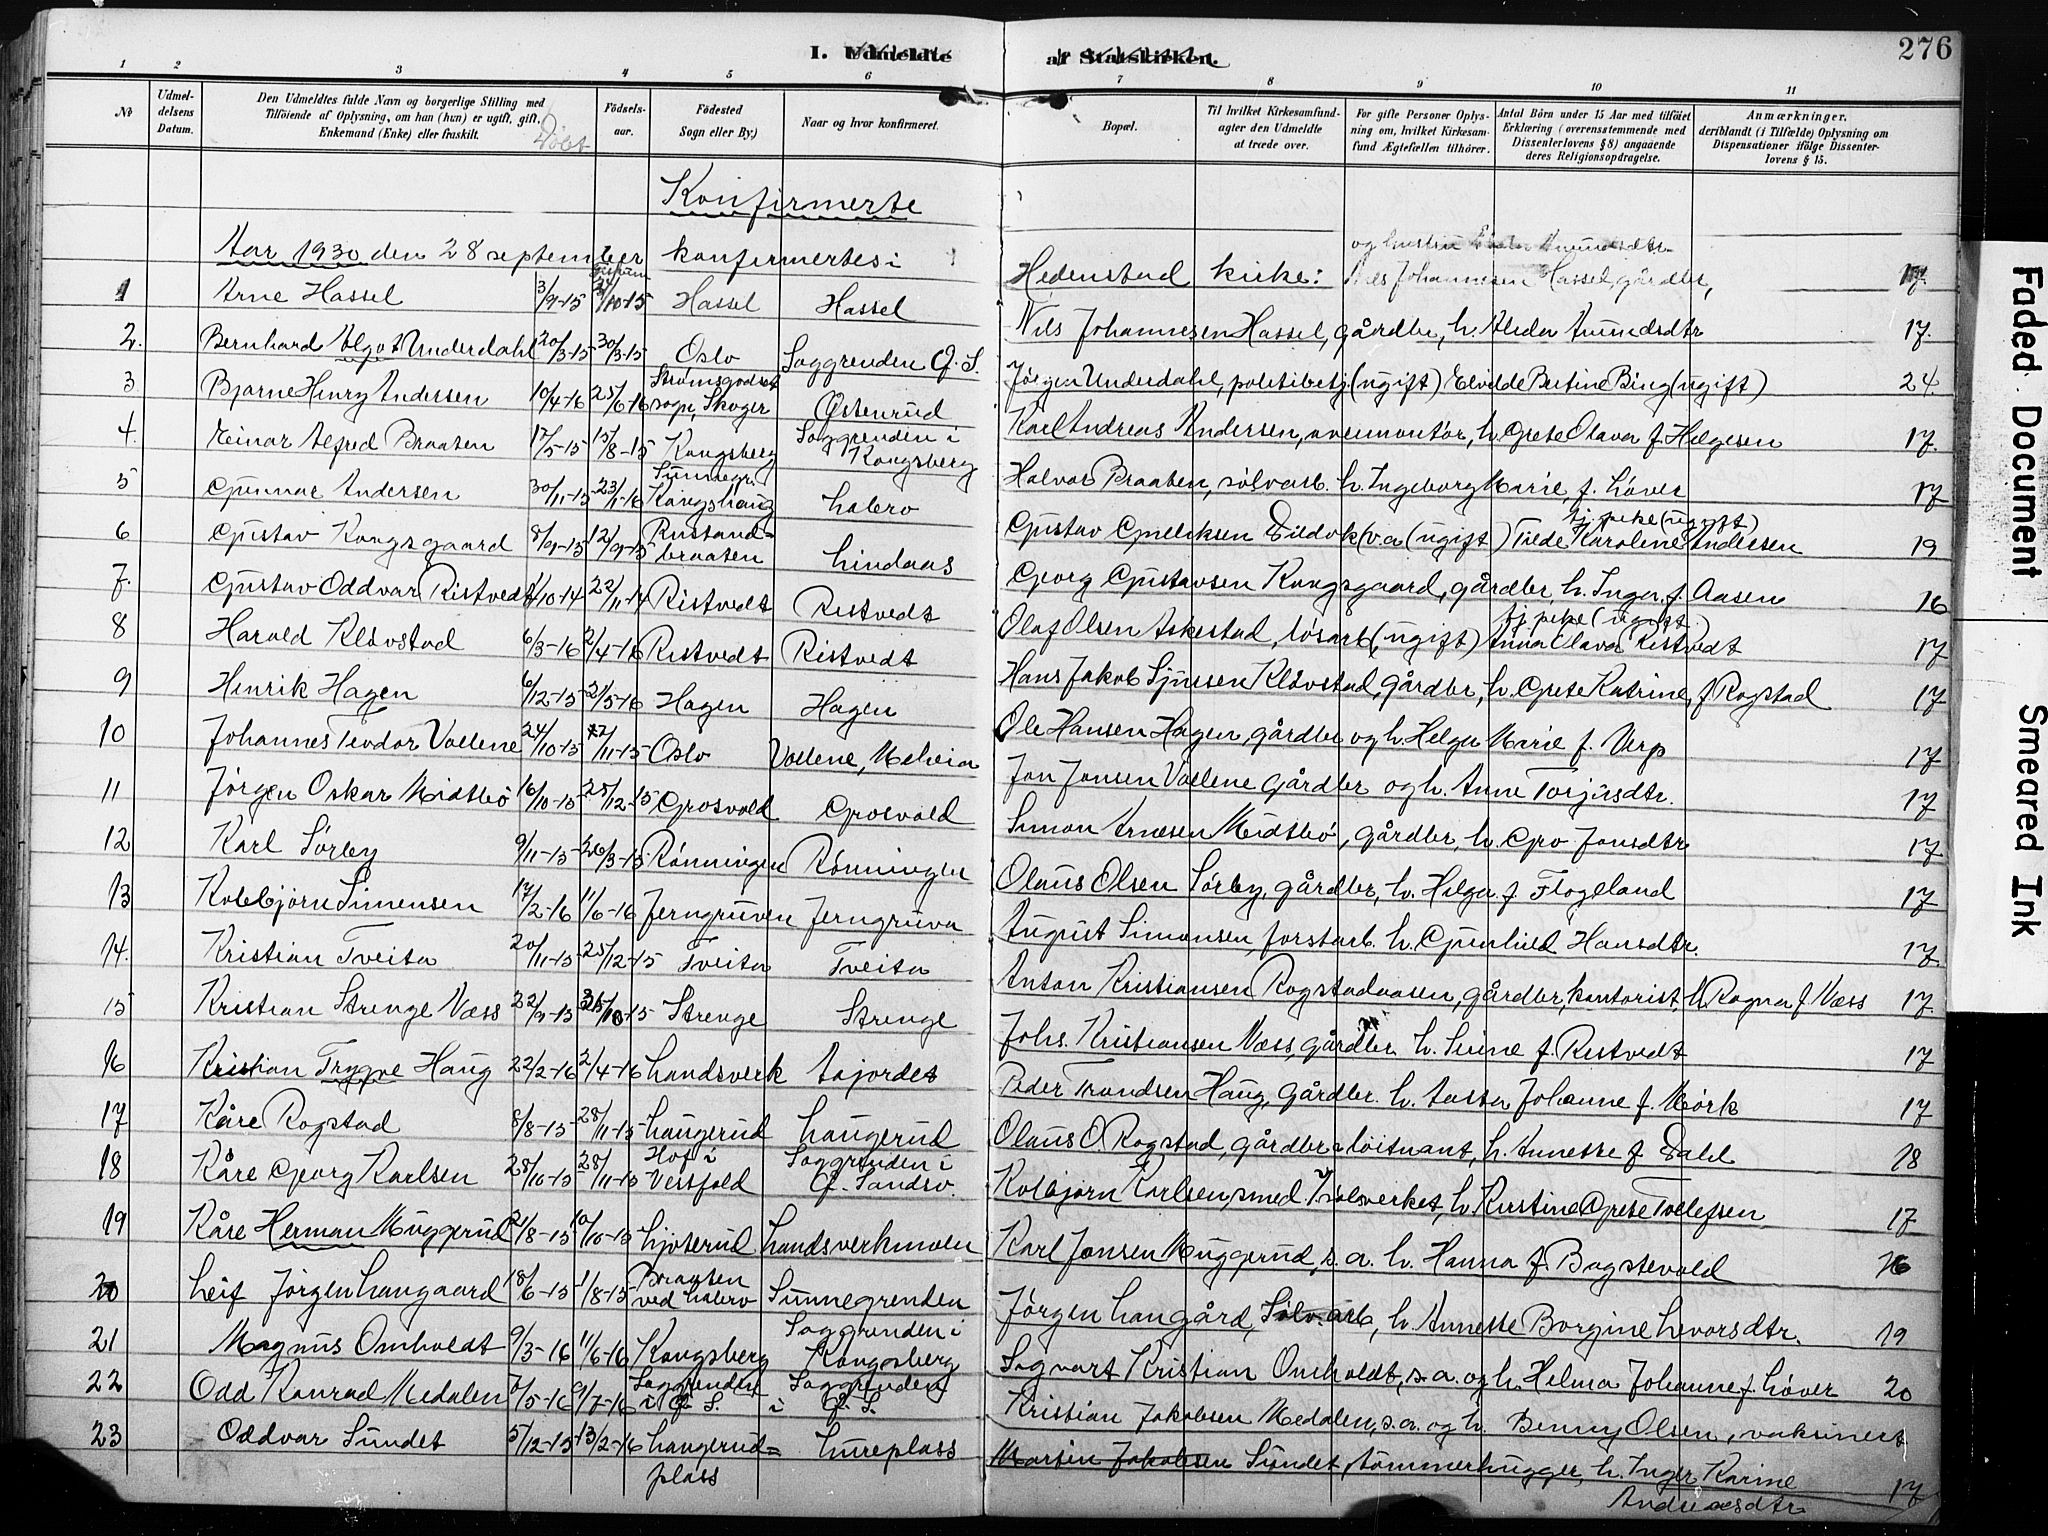 I. Udmeldte af Statskirken. 276
1 2 3 4 5 6 7 8 9 10 11
No
Udmel-
delsens
Datum.
Den Udmeldtes fulde Navn og borgerlige Stilling med
Tilføiende af Oplysning, om han (hun) er ugift, gift,
Enkemand (Enke) eller fraskilt.
Døbt
Fødsels-
aar.
Fødested
Sogn eller By.)
Naar og hvor konfirmeret.
Bopæl.
Til hvilket Kirkesamfund-
agter den Udmeldte
at træde over.
For gifte Personer Oplys-
ning om, hvilket Kirkesam-
fund Ægtefællen tilhører.
Antal Børn under 15 Aar med tilføiet
Erklæring (overensstemmende med
Dissenterlovens § 8) angaaende
deres Religionsopdragelse.
Anmærkninger.
deriblandt (i Tilfælde) Oplysning om
Dispensationer ifølge Dissenter-
lovens § 15.
Konfirmerte
Aar 1930 den 28 september konfirmertes i Hedenstad kirke:
1 Arne Hassel 3/9-15 /10-15 Hassel Hassel Nils Johannesen Hassel, gårdbr, h. Amundsdtr 17.
2. Bernhard Algot Underdahl 20/3-15 30/3-15 Oslo Saggrenden Ø. S. Jørgen Underdahl, politibetj. (ugift) Bertine Bing (ugift) 24.
3. Bjarne Henry Andersen 10/4-16 25/6-16 Strømsgodset sogn, Skoger Østenrud Karl Andreas Andersen, h. Grete Olava f. Helgesen 17.
4. Einar Alfred Braaten 17/5-15 15/8-15 Kongsberg Saggrenden i Kongsberg Halvor Braaten, sølvarb. h. Ingeborg Marie, f. Løver 17
5 Gunnar Andersen 30/11-15 23/1-16 Kongshaug Labro Gustav (ugift) tj. pike (ugift) Karoline Andersen 19
6 Gustav Kongsgaard 8/9-15 12/9-15 Rustand=braaten Lindaas Georg Gustavsen Kongsgaard, gårdbr h. Inga f. Aasen 16
7. Gustav Oddvar Ristvedt /10-14 22/11-14 Ristvedt Ristvedt Olaf Olsen Askestad, løsarb (ugift) tj. pike (ugift) Anna Olava Ristvedt 17
8 Harald Kløvstad 6/3-16 2/4-16 Ristvedt Ristvedt Hans Jakob Kløvstad, gårdbr, h. Grete Katrine, f. Rogstad 17
9 Henrik Hagen 6/12-15 21/5-16 Hagen Hagen Ole Hansen Hagen, gårdbr og h. Helga Marie f. Verp 17
10 Johannes Teodor Vollene 24/10-15 /11-15 Oslo Vollene, Meheia Jon Jonsen Vollene gårdbr og h. Anne Torjusdtr. 17
11 Jørgen Oskar Midtbø 16/10-15 25/12-15 Grosvold Grosvold Simon Midtbø, gårdbr, h. Gro Jonsdtr 17
12 Karl Sørby 9/11-15 26/3-15 Rønningen Rønningen Olaus Olsen Sørby, gårdbr, h. Helga f. Flogeland 17
13 Kolbjørn Simensen 17/2-16 11/6-16 Jerngruven Jerngruva August Simonsen, forstarb. h. Gunhild Hansdtr. 17
14. Kristian Tveita 20/11-15 25/12-15 Tveita Tveita Anton Kristiansen Rogstadaasen, gårdbr, kontorist, h. Ragna f. Væss 17.
15 Kristian Strenge Væss 22/9-15 /10-15 Strenge Strenge Johs. Kristiansen Væss, gårdbr. h. Sirine f. Ristvedt 17
16 Kristian Trygve Haug 22/2-16 2/4-16 Landsverk Lajordet Peder Trondsen Haug, gårdbr. h. Johanne f. Mørk 17
17 Kåre Rogstad 8/8-15 28/11-15 Laugerud Laugerud Olaus O. Rogstad, gårdbr løitnant, h. Annette f. Dahl 18
18 Kåre Georg Karlsen 28/10-15 28/11-15 Hof i Vestfold Saggrenden i Ø. Sandsv. Kolbjørn Karlsen, smed v/ Sølvverket, h. Kristine Grete Tollefsen 17
19 Kåre Herman Muggerud 21/8-15 10/10-15 Ljoterud Landsverkmoen Karl Jonsen Muggerud, s. a. h. Hanna f. Bagstevold 16
20 Leif Jørgen Langaard 18/6-15 1/8-15 Braaten ved Labro Sunnegrenden Jørgen Langård, Sølv. arb, h. Annette Borgine Levorsdtr. 19
21 Magnus Omholdt 9/3-16 11/6-16 Kongsberg Saggrenden i Kongsberg Sigvart Kristian Omholdt, s. a. og h. Helma Johanne f. Løver 20
22 Odd Konrad Medalen /5-16 9/7-16 Saggrenden i Ø. S. Saggrenden i Ø. S. Kristian Jakobsen Medalen, s. a. og h. Benny Olsen, vaksinert
23 Oddvar Sundet 5/12-15 13/2-16 Laugerud=plass Lureplass Martin Jakobsen Sundet, tømmerhugger, h. Inger Karine Andreasdtr 17
Faded Document
Smeared Ink